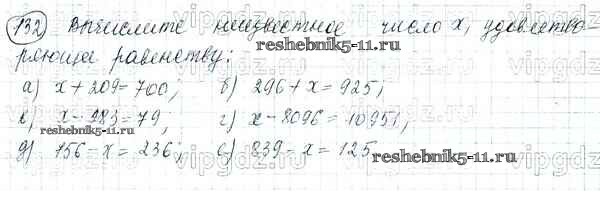 132 Вычислите неизвестное число x, удовлетво-
ряющее равенству:
а) x + 209 = 700; б) 296 + x = 925;
в) x - 483 = 79; г) x - 8096 = 10951;
д) 456 - x = 236; е) 839 - x = 125
reshebnik5-11.ru
reshebnik5-11.ru
reshebnik5-11.ru